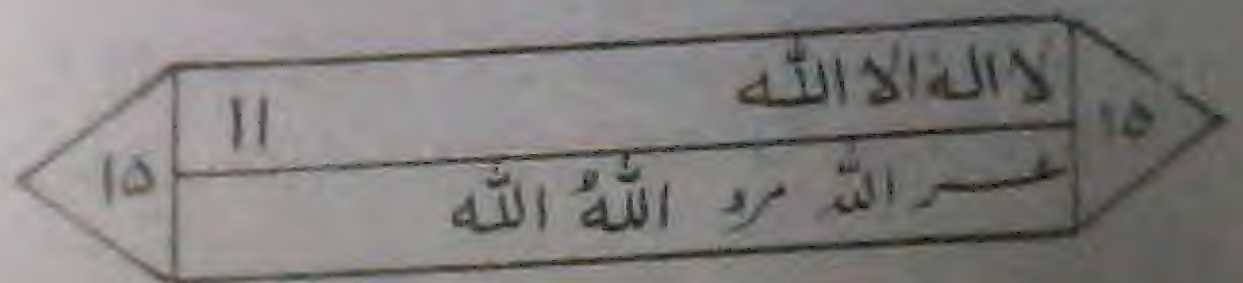 ۱۵
لا اله الا الله ۱۱
الله مرد اللهُ الله
۱۵